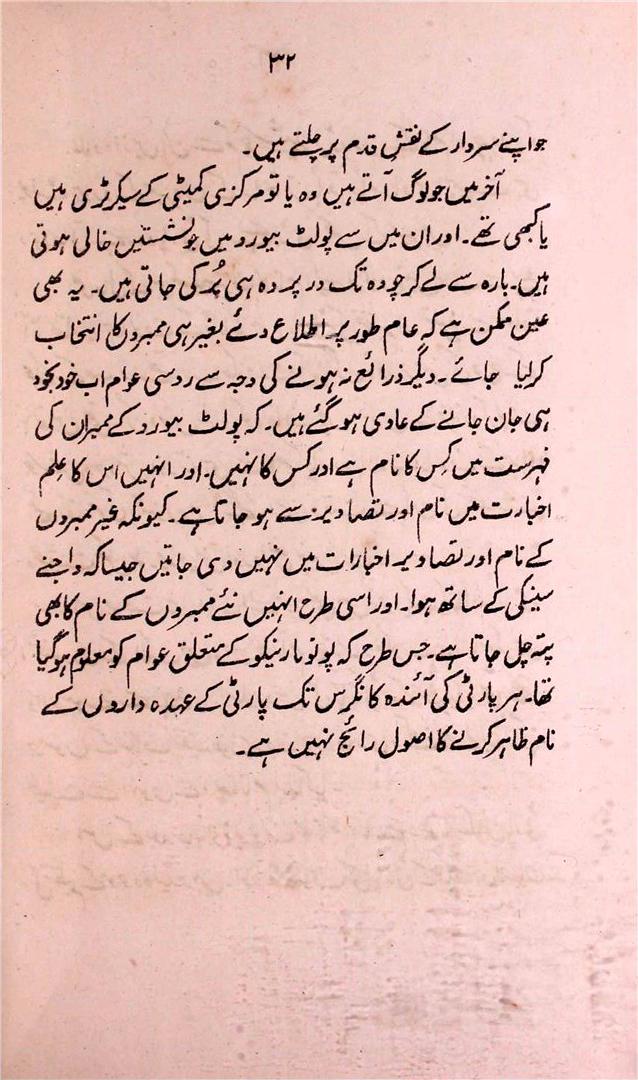 ۳۲
جو اپنے سردار کے نقشِ قدم پر چلتے ہیں۔
آخر میں جو لوگ آتے ہیں وہ یا تو مرکزی کمیٹی کے سیکرٹری ہیں
یا کبھی تھے۔ اور ان میں سے پولٹ بیورو میں جو نشستیں خالی ہوتی
ہیں۔ بارہ سے لے کر چودہ تک در پردہ ہی پُر کی جاتی ہیں۔ یہ بھی
عین ممکن ہے کہ عام طور پر اطلاع دئے بغیر ہی ممبروں کا انتخاب
کر لیا جائے۔ دیگر ذرائع نہ ہونے کی وجہ سے روسی عوام اب خود بخود
ہی جان جانے کے عادی ہو گئے ہیں۔ کہ پولٹ بیورو کے ممبران کی
فہرست میں کِس کا نام ہے اور کس کا نہیں۔ اور انہیں اس کا عِلم
اخبارت میں نام اور تصاویر سے ہو جاتا ہے۔ کیونکہ غیر ممبروں
کے نام اور تصاویر اخبارات میں نہیں دی جاتیں جیسا کہ واجنے
سینکی کے ساتھ ہوا۔ اور اسی طرح انہیں نئے ممبروں کے نام کا بھی
پتہ چل جاتا ہے۔ جس طرح کہ پونومارنیکو کے متعلق عوام کو معلوم ہو گیا
تھا۔ ہر پارٹی کی آئندہ کانگرس تک پارٹی کے عہدہ داروں کے
نام ظاہر کرنے کا اصول رائج نہیں ہے۔